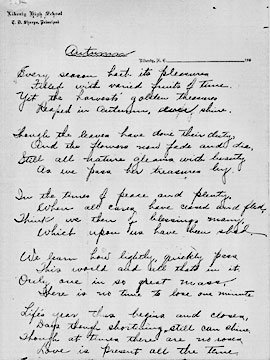 Liberty High School
Principal
Liberty, N. C. 190
Autumn
Every season hast its pleasures
Filled with varied fruits of time.
Yet the harvests golden treasures
Reaped in Autumn, ever shine.
Though the leaves have done their duty,
And the flowers now fade and die,
Still all nature gleams with beauty
As we pass her treasures by.
In the times of peace and plenty,
When all cares have ceased and fled,
Think we then of blessings many,
Which upon us have been shed.
We learn how lightly, quickly pass
This world and all that's in it.
Only are in so great mass,
There is no time to lose one minute
Life's year thus begins and closes,
Days though short'ning, still can shine.
Though at times there are no roses,
Love is present all the time.